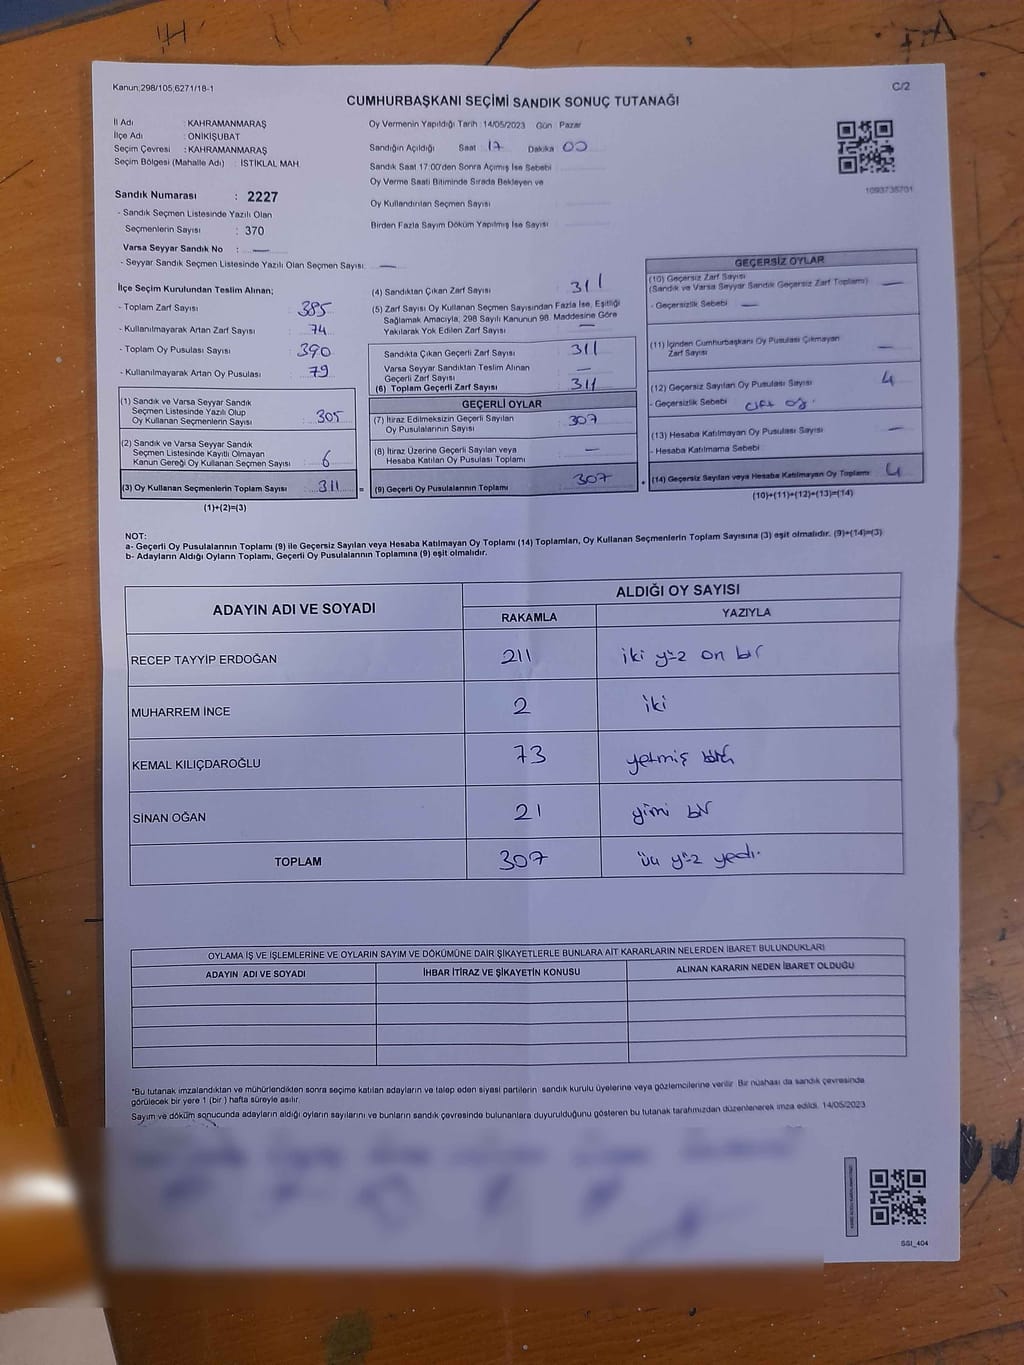 Kanun;298/105;6271/18-1
C/2
CUMHURBAŞKANI SEÇİMİ SANDIK SONUÇ TUTANAĞI
İl Adı : KAHRAMANMARAŞ
İlçe Adı : ONİKİŞUBAT
Seçim Çevresi : KAHRAMANMARAŞ
Seçim Bölgesi (Mahalle Adı) : İSTİKLAL MAH.
Oy Vermenin Yapıldığı Tarih : 14/05/2023 Gün : Pazar
Sandığın Açıldığı Saat 17 Dakika 00
Sandık Saat 17:00'den Sonra Açımış İse Sebebi
Oy Verme Saati Bitiminde Sırada Bekleyen ve
Oy Kullandırılan Seçmen Sayısı
Birden Fazla Sayım Döküm Yapılmış İse Sayısı
1093735701
Sandık Numarası : 2227
- Sandık Seçmen Listesinde Yazılı Olan
Seçmenlerin Sayısı : 370
Varsa Seyyar Sandık No : —
- Seyyar Sandık Seçmen Listesinde Yazılı Olan Seçmen Sayısı: —
İlçe Seçim Kurulundan Teslim Alınan;
- Toplam Zarf Sayısı : 385
- Kullanılmayarak Artan Zarf Sayısı : 74
- Toplam Oy Pusulası Sayısı : 390
- Kullanılmayarak Artan Oy Pusulası : 79
(1) Sandık ve Varsa Seyyar Sandık
Seçmen Listesinde Yazılı Olup
Oy Kullanan Seçmenlerin Sayısı : 305
(2) Sandık ve Varsa Seyyar Sandık
Seçmen Listesinde Kayıtlı Olmayan
Kanun Gereği Oy Kullanan Seçmen Sayısı : 6
(3) Oy Kullanan Seçmenlerin Toplam Sayısı : 311 =
(1)+(2)=(3)
(4) Sandıktan Çıkan Zarf Sayısı : 311
(5) Zarf Sayısı Oy Kullanan Seçmen Sayısından Fazla İse, Eşitliği
Sağlamak Amacıyla, 298 Sayılı Kanunun 98. Maddesine Göre
Yakılarak Yok Edilen Zarf Sayısı : —
Sandıkta Çıkan Geçerli Zarf Sayısı : 311
Varsa Seyyar Sandıktan Teslim Alınan
Geçerli Zarf Sayısı : —
(6) Toplam Geçerli Zarf Sayısı : 311
GEÇERLİ OYLAR
(7) İtiraz Edilmeksizin Geçerli Sayılan
Oy Pusulalarının Sayısı : 307
(8) İtiraz Üzerine Geçerli Sayılan veya
Hesaba Katılan Oy Pusulası Toplamı : —
(9) Geçerli Oy Pusulalarının Toplamı : 307
GEÇERSİZ OYLAR
(10) Geçersiz Zarf Sayısı
(Sandık ve Varsa Seyyar Sandık Geçersiz Zarf Toplamı) : —
- Geçersizlik Sebebi : —
(11) İçinden Cumhurbaşkanı Oy Pusulası Çıkmayan
Zarf Sayısı : —
(12) Geçersiz Sayılan Oy Pusulası Sayısı : 4
- Geçersizlik Sebebi : çift oy.
(13) Hesaba Katılmayan Oy Pusulası Sayısı : —
- Hesaba Katılmama Sebebi :
(14) Geçersiz Sayılan veya Hesaba Katılmayan Oy Toplamı : 4
(10)+(11)+(12)+(13)=(14)
NOT:
a- Geçerli Oy Pusulalarının Toplamı (9) ile Geçersiz Sayılan veya Hesaba Katılmayan Oy Toplamı (14) Toplamları, Oy Kullanan Seçmenlerin Toplam Sayısına (3) eşit olmalıdır. (9)+(14)=(3)
b- Adayların Aldığı Oyların Toplamı, Geçerli Oy Pusulalarının Toplamına (9) eşit olmalıdır.
ADAYIN ADI VE SOYADI
ALDIĞI OY SAYISI
RAKAMLA YAZIYLA
RECEP TAYYİP ERDOĞAN 211 iki yüz on bir
MUHARREM İNCE 2 iki
KEMAL KILIÇDAROĞLU 73 yetmiş
SİNAN OĞAN 21 yimi bir
TOPLAM 307 üç yüz yedi.
OYLAMA İŞ VE İŞLEMLERİNE VE OYLARIN SAYIM VE DÖKÜMÜNE DAİR ŞİKAYETLERLE BUNLARA AİT KARARLARIN NELERDEN İBARET BULUNDUKLARI
ADAYIN ADI VE SOYADI İHBAR İTİRAZ VE ŞİKAYETİN KONUSU ALINAN KARARIN NEDEN İBARET OLDUĞU
*Bu tutanak imzalandıktan ve mühürlendikten sonra seçime katılan adayların ve talep eden siyasi partilerin sandık kurulu üyelerine veya gözlemcilerine verilir. Bir nüshası da sandık çevresinde
görülecek bir yere 1 (bir) hafta süreyle asılır.
Sayım ve döküm sonucunda adayların aldığı oyların sayılarını ve bunların sandık çevresinde bulunanlara duyurulduğunu gösteren bu tutanak tarafımızdan düzenlenerek imza edildi. 14/05/2023
SSI_404